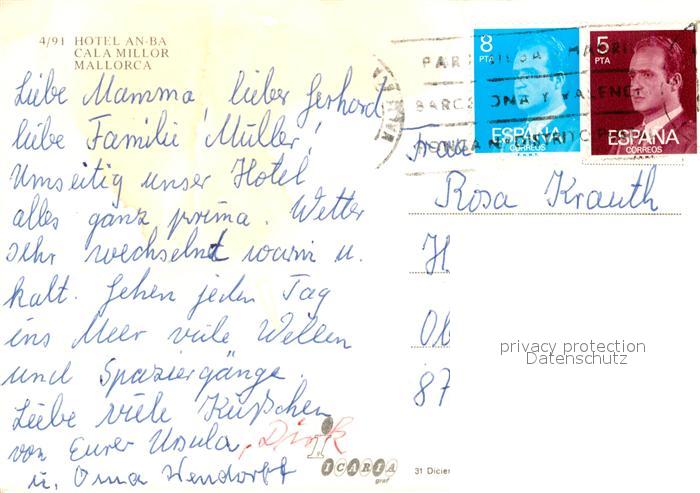 4/91 HOTEL AN-BA
CALA MILLOR
MALLORCA
Liebe Mamma, lieber Gerhard
liebe Familie Müller!
Umseitig unser Hotel
alles ganz prima. Wetter
sehr wechselnd warm u.
kalt. Gehen jeden Tag
ins Meer viele Wellen
und Spaziergänge.
Liebe viele Küßchen
von Eurer Ursula, Dirk
u. Oma Wendorff
ICARIA
graf
31 Dicier
8
PTA
ESPAÑA
CORREOS
F.N.M.T.
5
PTA
ESPAÑA
CORREOS
F.N.M.T.
Frau
Rosa Krauth
H
Ob
87
privacy protection
Datenschutz